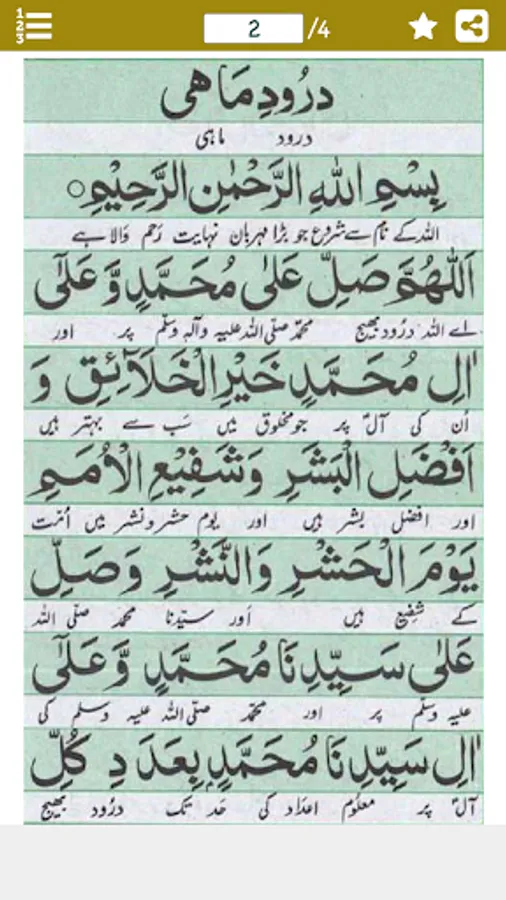 1
2
3
2 /4
درُودِ مَاهی
درود ماہی
بِسْمِ اللهِ الرَّحْمٰنِ الرَّحِيْمِ○
اللہ کے نام سے شروع جو بڑا مہربان نہایت رَحم وَالا ہے
اَللّٰهُمَّ صَلِّ عَلٰى مُحَمَّدٍ وَّ عَلٰٓى
اے اللہ درُود بھیج محمّد صلّی اللہ علیہ وآلہٖ وسلّم پر اور
اٰلِ مُحَمَّدٍ خَيْرِ الْخَلَآئِقِ وَ
اُن کی آلؑ پر جو مخلوق میں سَب سے بہتر ہیں
اَفْضَلِ الْبَشَرِ وَشَفِيْعِ الْاُمَمِ
اور افضل بشر ہیں اور یوم حشر و نشر میں اُمّت
يَوْمَ الْحَشْرِ وَالنَّشْرِ وَصَلِّ
کے شفِیع ہیں اَور سیّدنا محمّد صلّی اللہ
عَلٰى سَيِّدِنَا مُحَمَّدٍ وَّعَلٰٓى
علیہ وسلّم پر اور محمّد صلّی اللہ علیہ وسلم کی
اٰلِ سَيِّدِنَا مُحَمَّدٍۭ بِعَدَدِ كُلِّ
آلؑ پر معلُوم اعدَاد کی حَد تک درُود بھیج